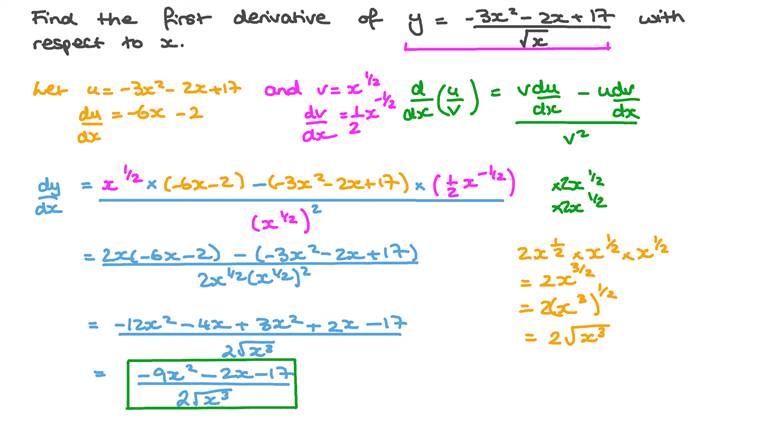 Find the first derivative of y = (-3x² - 2x + 17)/√x with
respect to x.
Let u = -3x² - 2x + 17 and v = x^(1/2) d/dx (u/v) = (v du/dx - u dv/dx)/v²
du/dx = -6x - 2 dv/dx = 1/2 x^(-1/2)
dy/dx = (x^(1/2) × (-6x-2) - (-3x² - 2x + 17) × (1/2 x^(-1/2)))/(x^(1/2))² ×2x^(1/2) ×2x^(1/2)
= (2x(-6x-2) - (-3x² - 2x + 17))/(2x^(1/2)(x^(1/2))²)
2x^(1/2) × x^(1/2) × x^(1/2)
= 2x^(3/2)
= 2(x³)^(1/2)
= 2√x³
= (-12x² - 4x + 3x² + 2x - 17)/(2√x³)
= (-9x² - 2x - 17)/(2√x³)